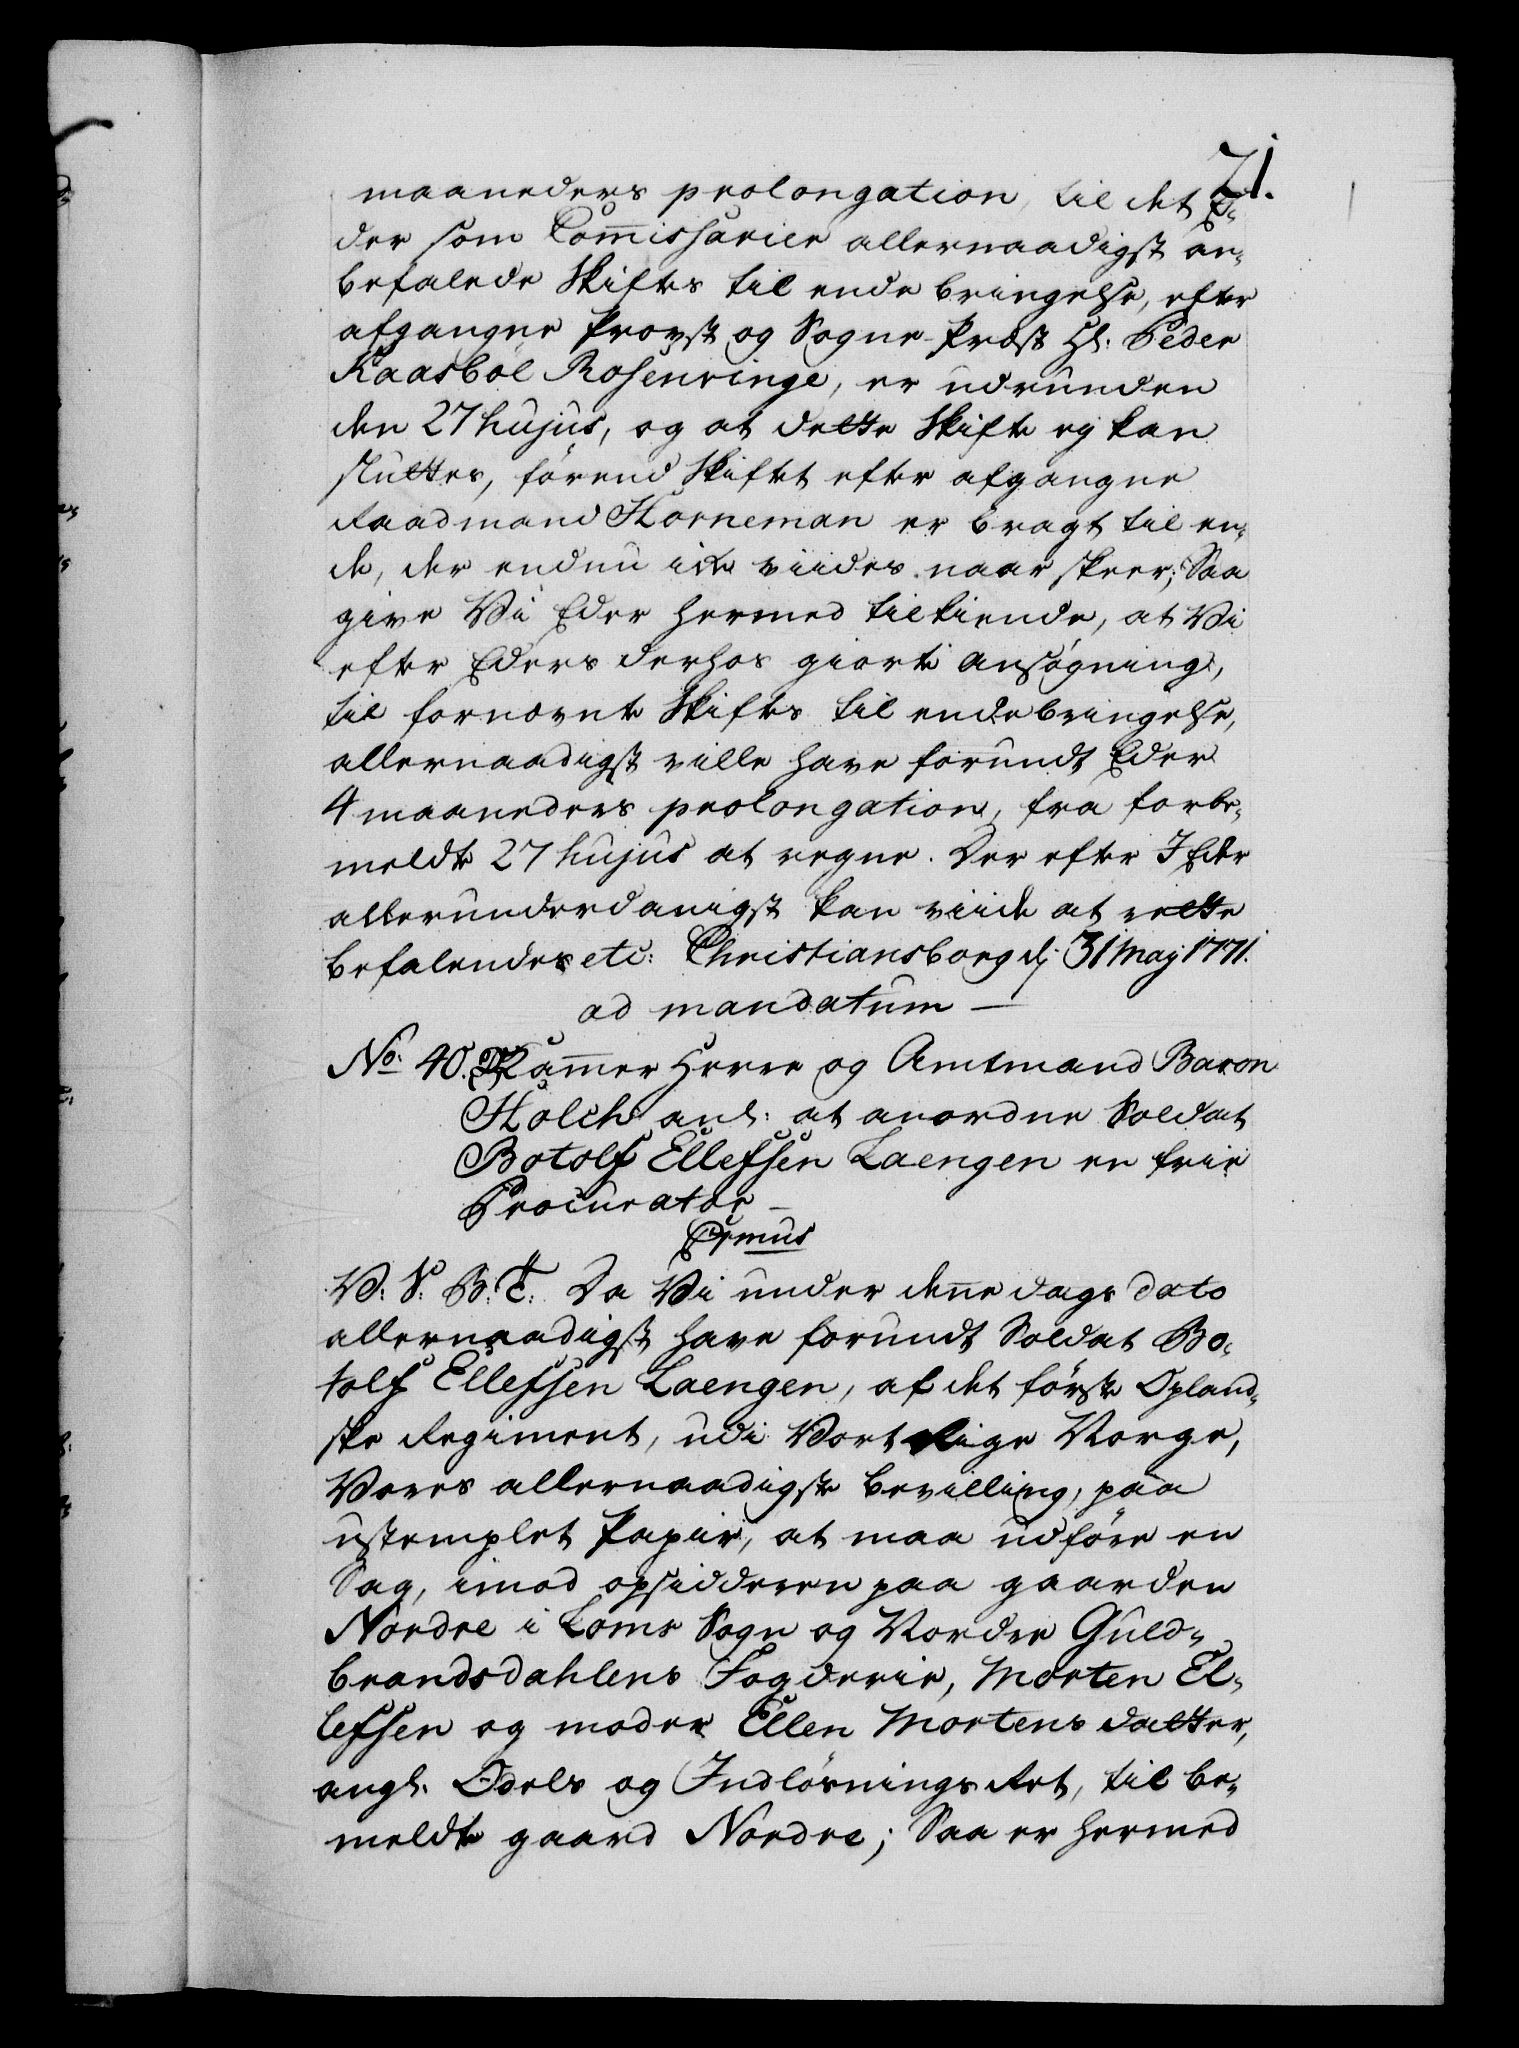 71.
maaneders prolongation, til det E-
der som Com̄issarier allernaadigst an-
befalede Skiftes til ende bringelse, efter
afgangne Provst og Sogne-Præst Hr. Peder
Kaasböl Rosenvinge, er udrunden
den 27 hujus, og at dette Skifte ej kan
sluttes, förend Skiftet efter afgangne
Raadmand Horneman er bragt til en-
de, der endnu ikke viides naar skeer; Saa
give Vi Eder hermed tilkiende, at Vi
efter Eders derhos giorte ansögning,
til fornævnte Skiftes til endebringelse,
allernaadigst ville have forundt Eder
4 maaneders prolongation, fra forbe-
meldte 27 hujus at regne. Der efter I Eder
allerunderdanigst kan viide at rette
befalendes etc: Christiansborg d. 31 Maj 1771.
ad mandatum —
No. 40. Kam̄er Herre og Amtmand Baron
Holck anl: at anordne Soldat
Botolf Ellefsen Laengen en frie
Procurator —
V: S: B: T: Da Vi under den̄e dags dato
allernaadigst have forundt Soldat Bo-
tolf Ellefsen Laengen, af det förste Opland-
ske Regiment, udi Vort Rige Norge,
Vores allernaadigste bevilling, paa
ustemplet Papiir, at maa udföre en
Sag, imod opsidderen paa gaarden
Nordre i Loms Sogn og Norder Guld-
brandsdahlens Fogderie, Morten El-
lefsen og moder Ellen Mortens datter,
angl. Odels og Indlösnings Ret, til be-
meldte gaard Nordre; Saa er hermed